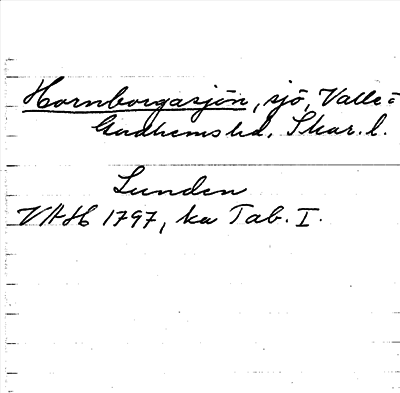 Hornborgasjön, sjö, Valle o
Gudhems hd, Skar. l.
Lunden
VAH 1797, ka Tab. I.